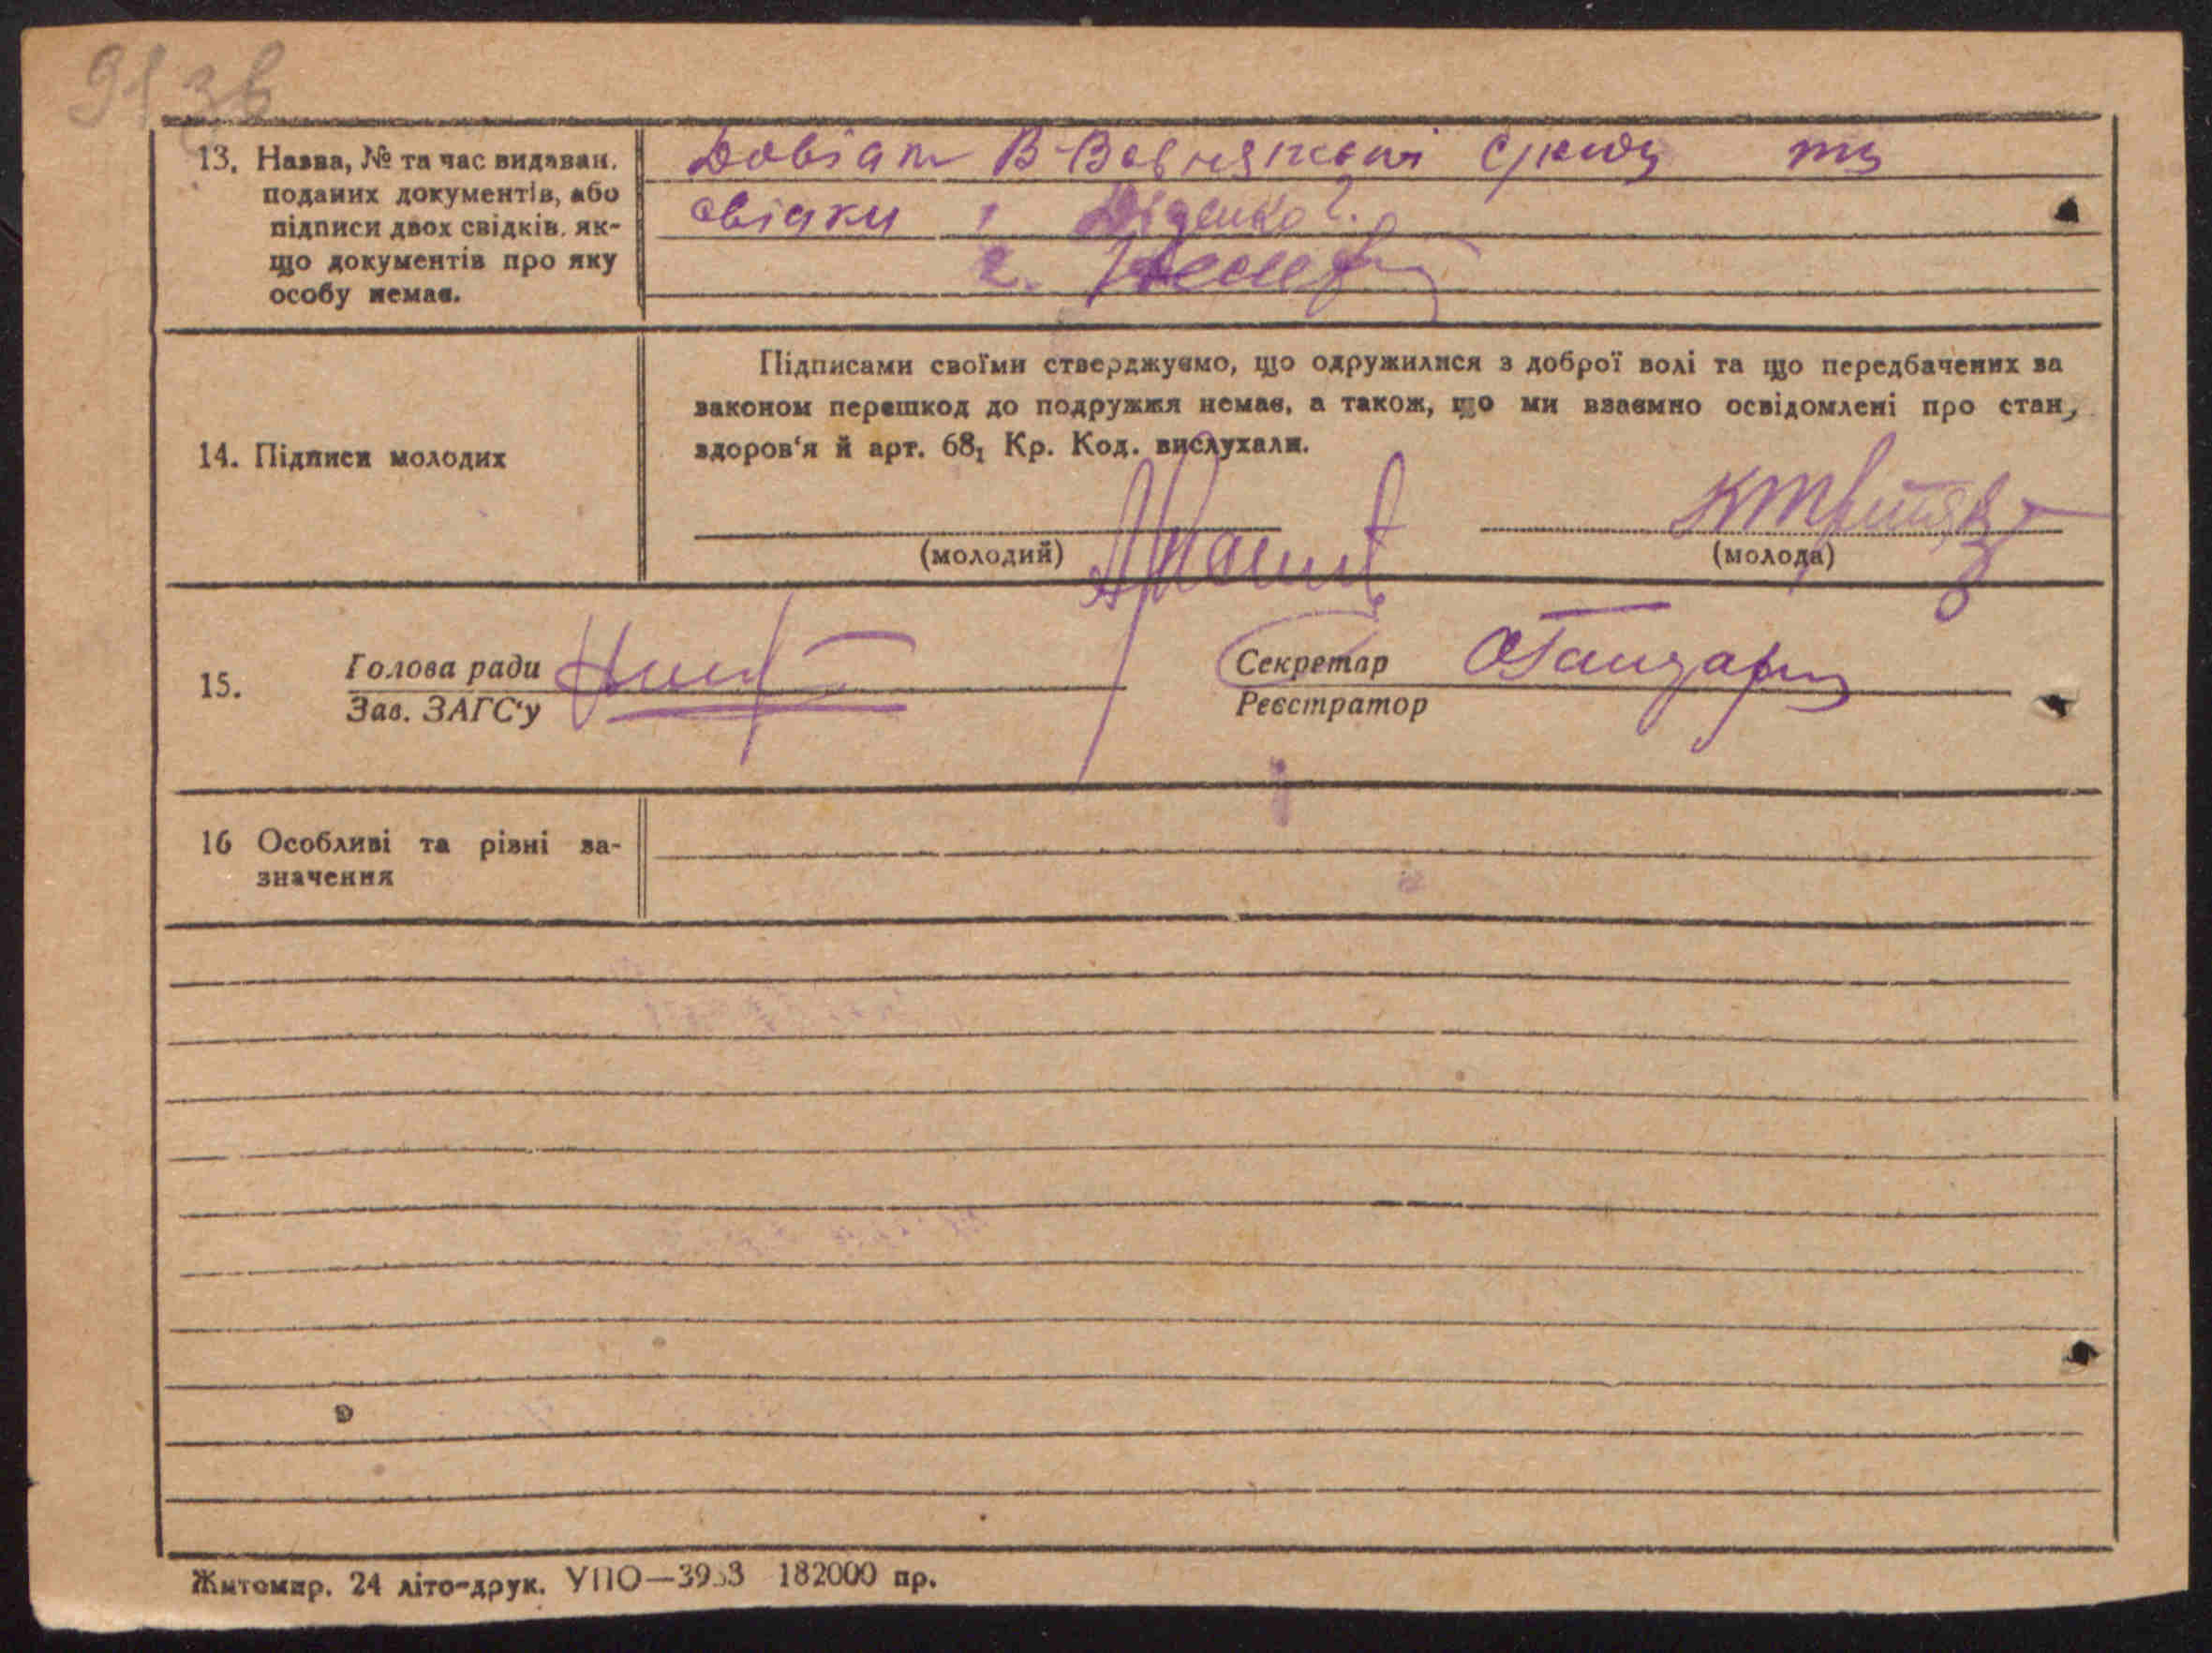 91 зв
13. Назва, № та час видаван.
поданих документів, або
підписи двох свідків, як-
що документів про яку
особу немає.
Довідка В-
та
свідки 1 Діденко
2.
14. Підписи молодих
Підписами своїми стверджуємо, що одружилися з доброї волі та що передбачених за
законом перешкод до подружжя немає, а також, що ми взаємно освідомлені про стан,
здоров'я й арт. 68₁ Кр. Код. вислухали.
(молодий)
(молода)
15.
Голова ради
Зав. ЗАГС'у
Секретар
Реєстратор
16 Особливі та різні за-
значення
Житомир. 24 літо-друк. УПО—3953 182000 пр.